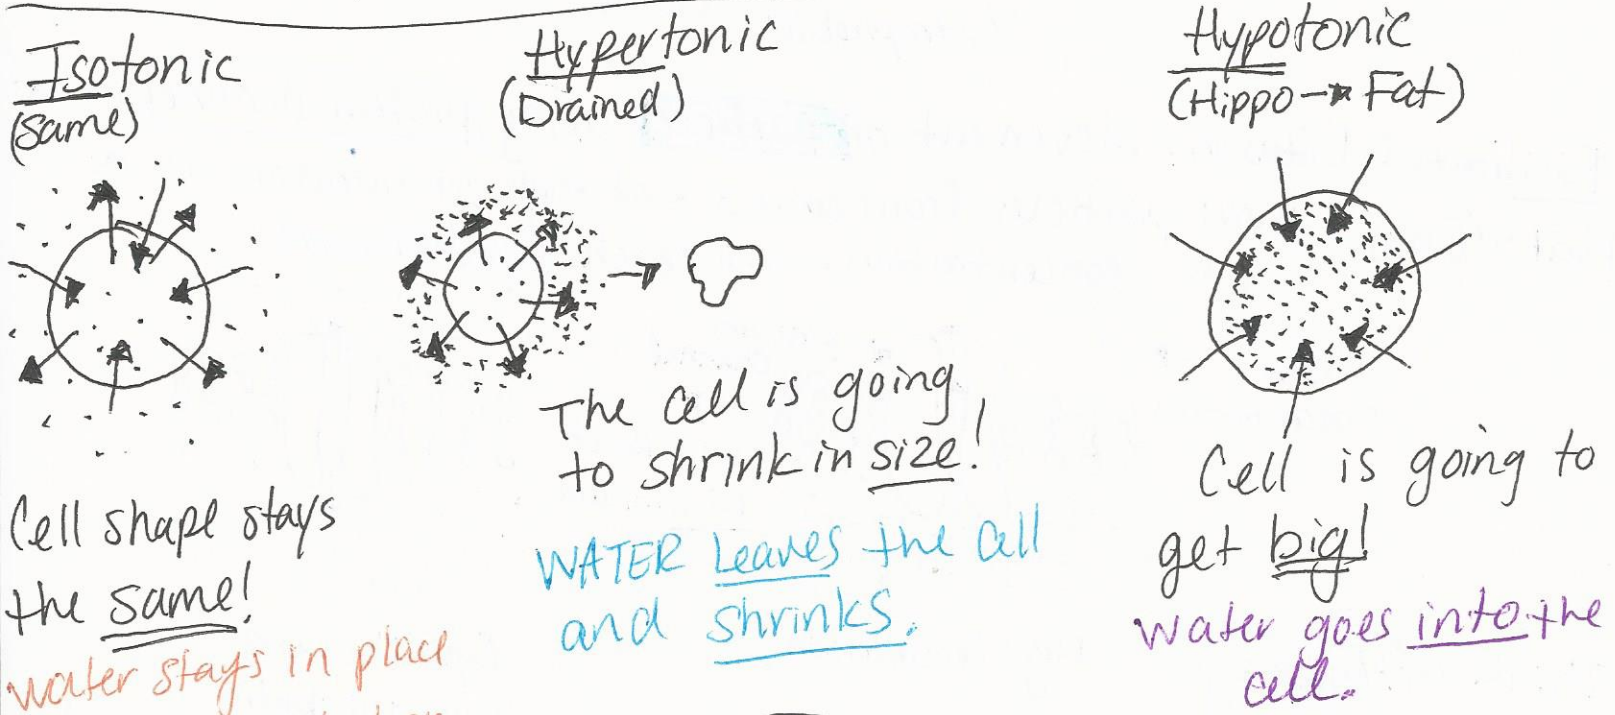 Isotonic
(Same)
Cell shape stays
the same!
water stays in place
Hypertonic
(Drained)
The cell is going
to shrink in size!
WATER Leaves the cell
and shrinks.
Hypotonic
(Hippo→ Fat)
Cell is going to
get big!
Water goes into the
cell.